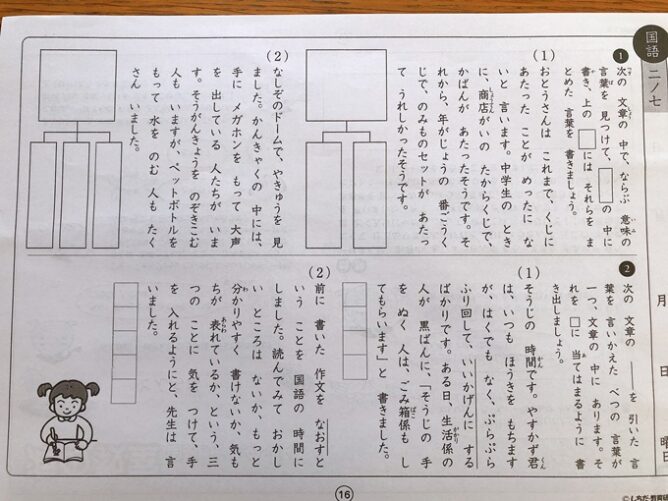 国語 二ノ七
月
日
曜日
❶
次の 文章の 中で、ならぶ 意味の
言葉を 見つけて、□の 中に
書き、上の □には それらを ま
とめた 言葉を 書きましょう。
(1)
おとうさんは これまで、くじに
あたった ことが めったに な
いと 言います。中学生の とき
に、商店がいの たからくじで、
かばんが あたったそうです。そ
れから、年がじょうの 番ごうく
じで、のみものセットが あたっ
て うれしかったそうです。
(2)
なしぞのドームで、やきゅうを 見
ました。かんきゃくの 中には、
手に メガホンを もって 大声
を 出している 人たちが いま
す。そうがんきょうを のぞきこむ
人も いますが、ペットボトルを
もって 水を のむ 人も たく
さん いました。
❷
次の 文章の ――を 引いた 言
葉を 言いかえた べつの 言葉が
一つ、文章の 中に あります。そ
れを □に 当てはまるように 書
き出しましょう。
(1)
そうじの 時間です。やすかず君
は、いつも ほうきを もちます
が、はくでも なく、ぶらぶら
ふり回して、いいかげんに する
ばかりです。ある日、生活係の
人が 黒ばんに、「そうじの 手
を ぬく 人は、ごみ箱係も し
てもらいます」と 書きました。
(2)
前に 書いた 作文を なおすと
いう ことを 国語の 時間に
しました。読んでみて おかし
い ところは ないか、もっと
分かりやすく 書けないか、気も
ちが 表れているか、という、三
つの ことに 気を つけて、手
を 入れるようにと、先生は 言
いました。
16